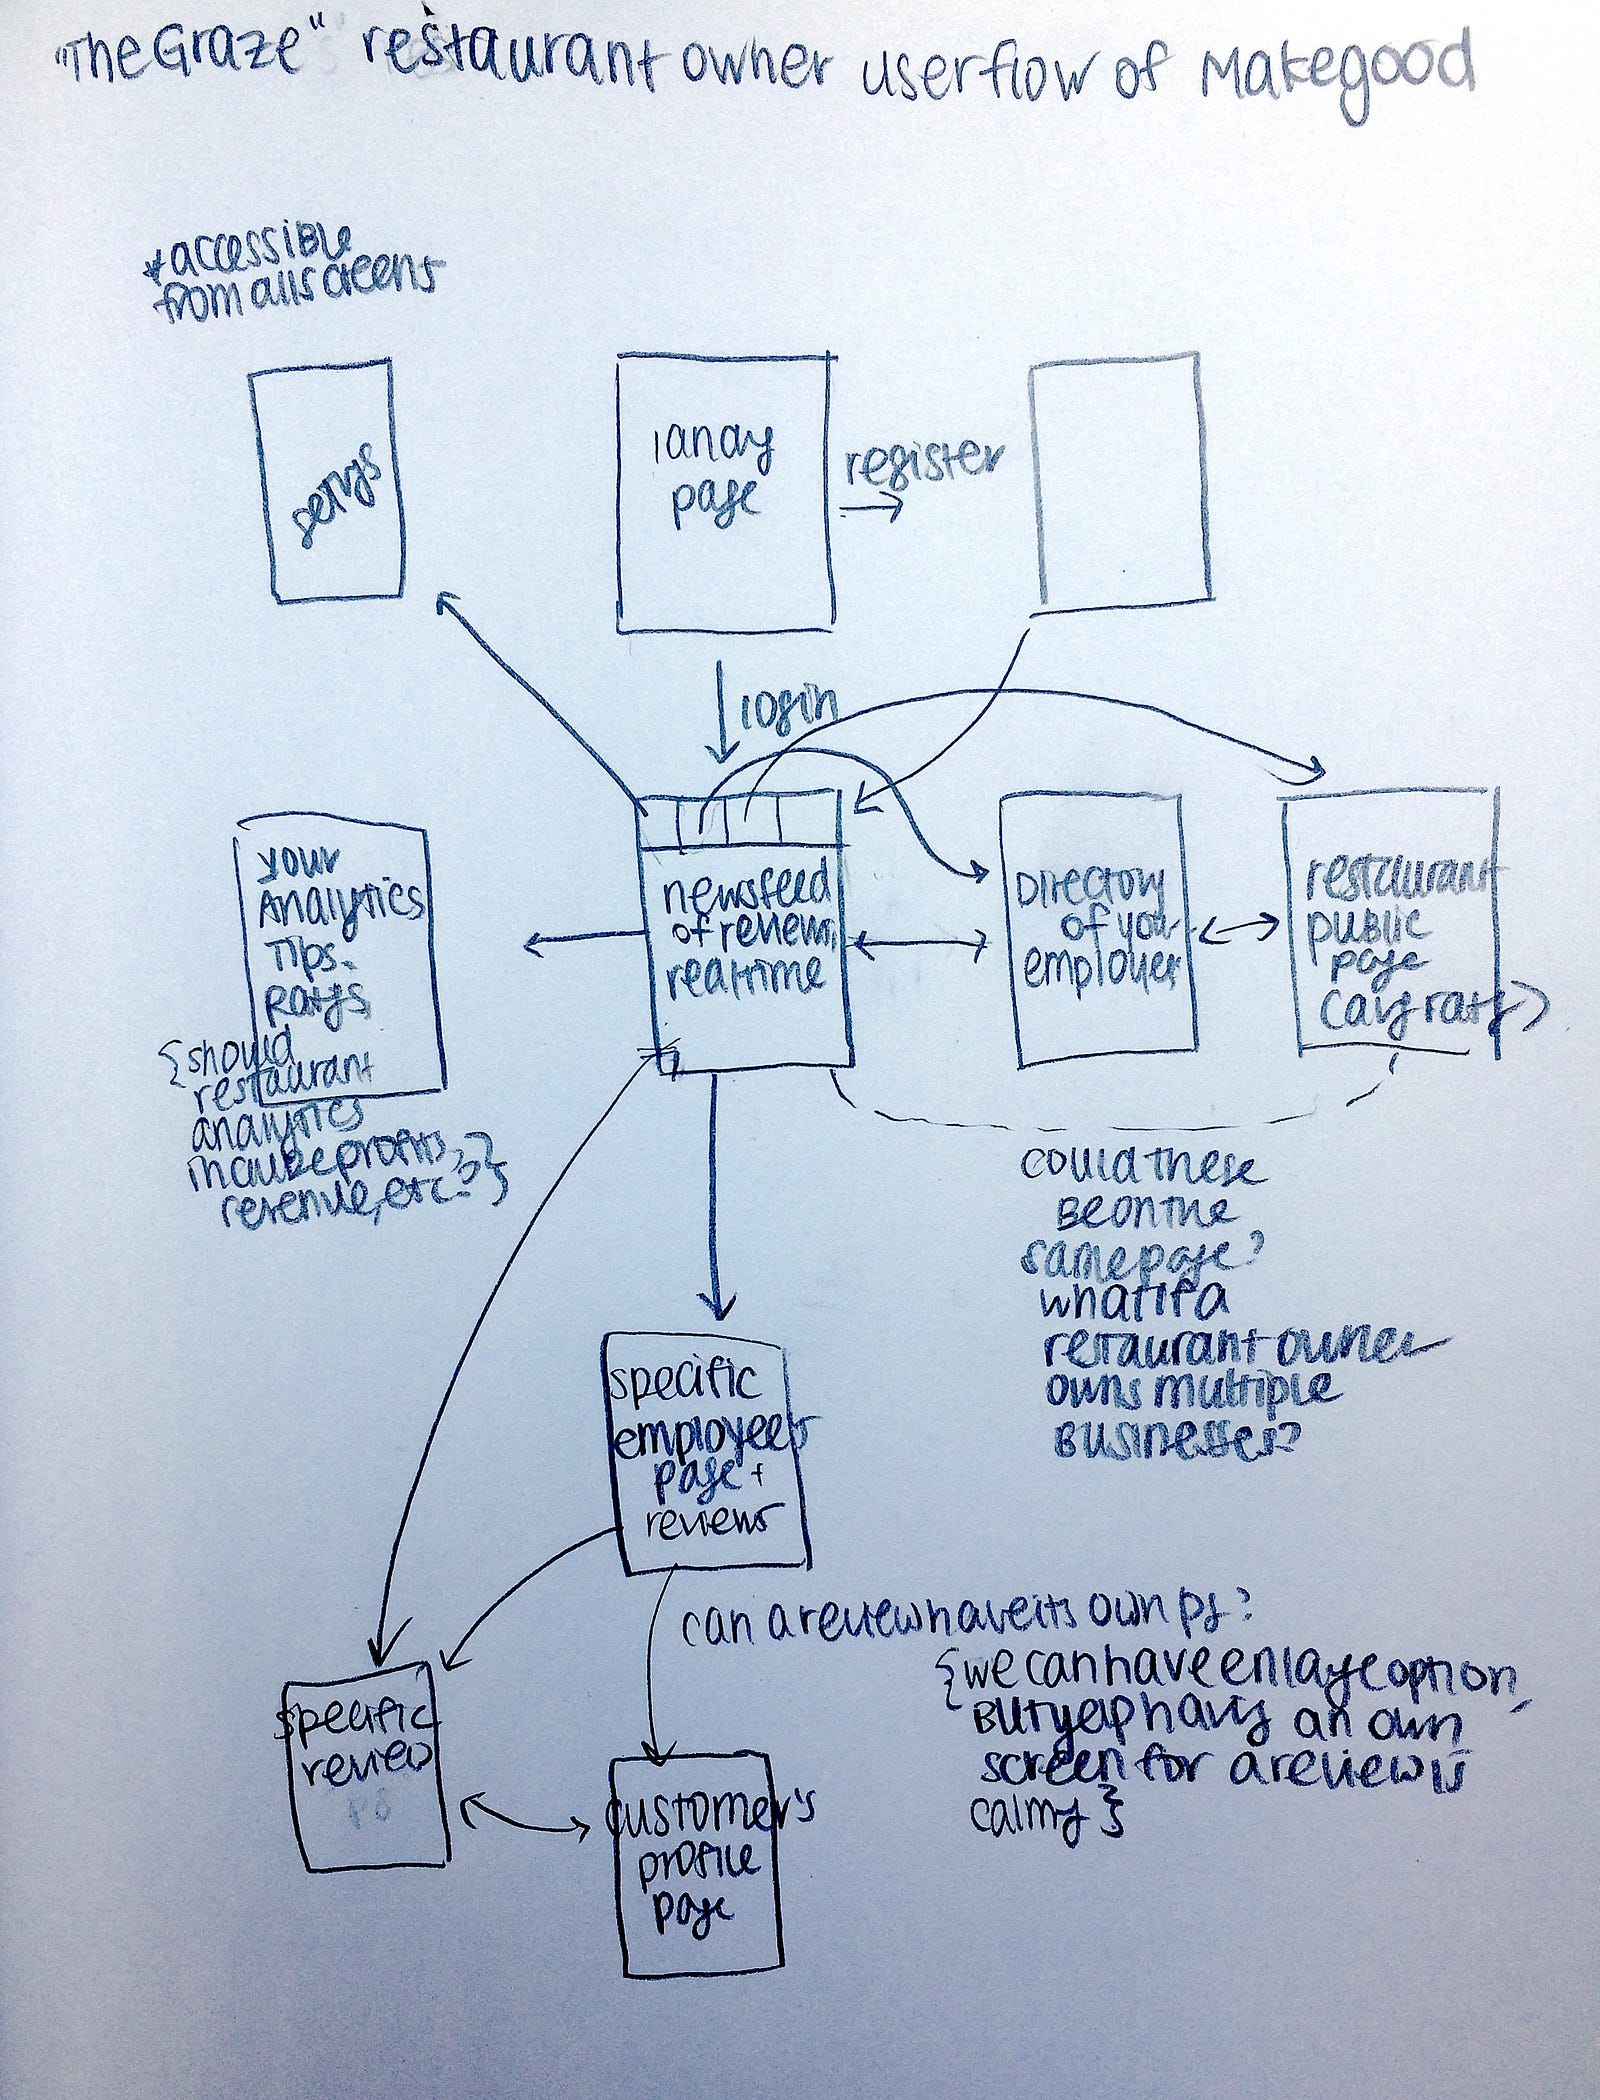 "The Graze" restaurant owner userflow of Makegood
*accessible
from all screens
settings
landing
page
register
login
your
Analytics
Tips.
Ratings
{should
restaurant
analytics
include profits,
revenue, etc.?}
newsfeed
of reviews,
realtime
Directory
of your
employees
restaurant
public
page
(avg rating)
could these
be on the
same page?
what if a
restaurant owner
owns multiple
businesses?
specific
employee's
page +
reviews
can a review have its own pg?
{we can have enlarge option,
but yeah having an own
screen for a review is
calming}
specific
review
pg
customer's
profile
page